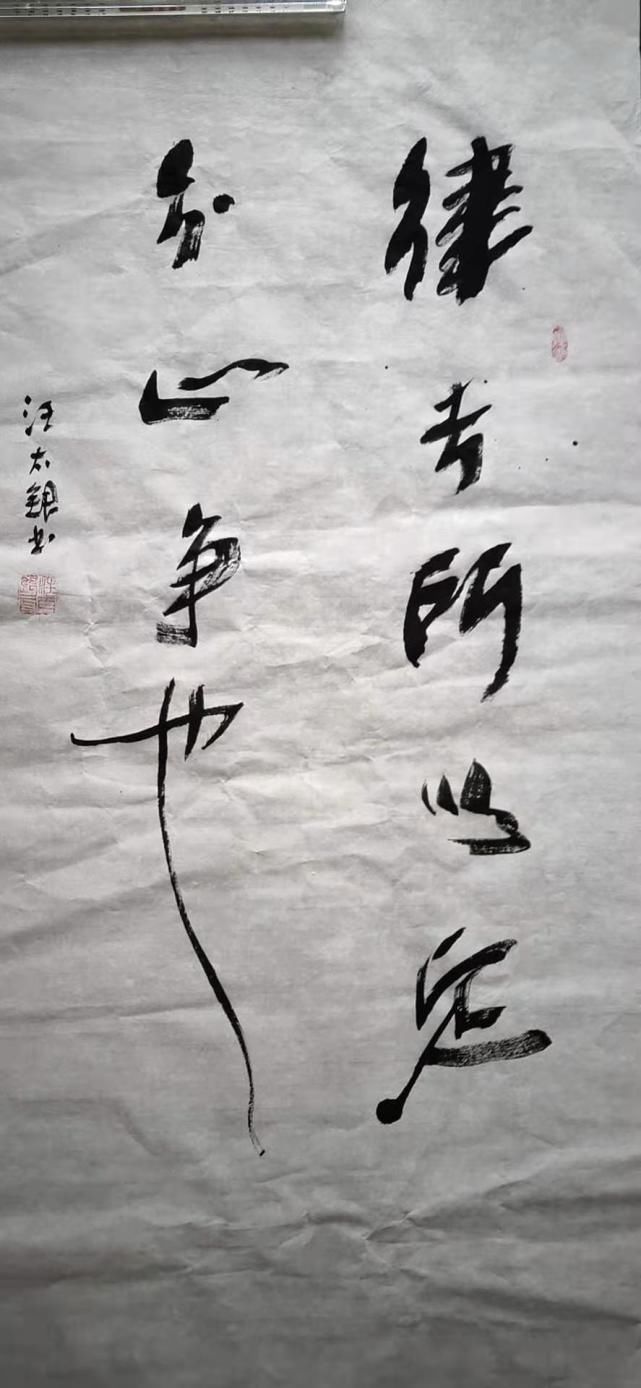 律者所以定
分止争也
汪太银书